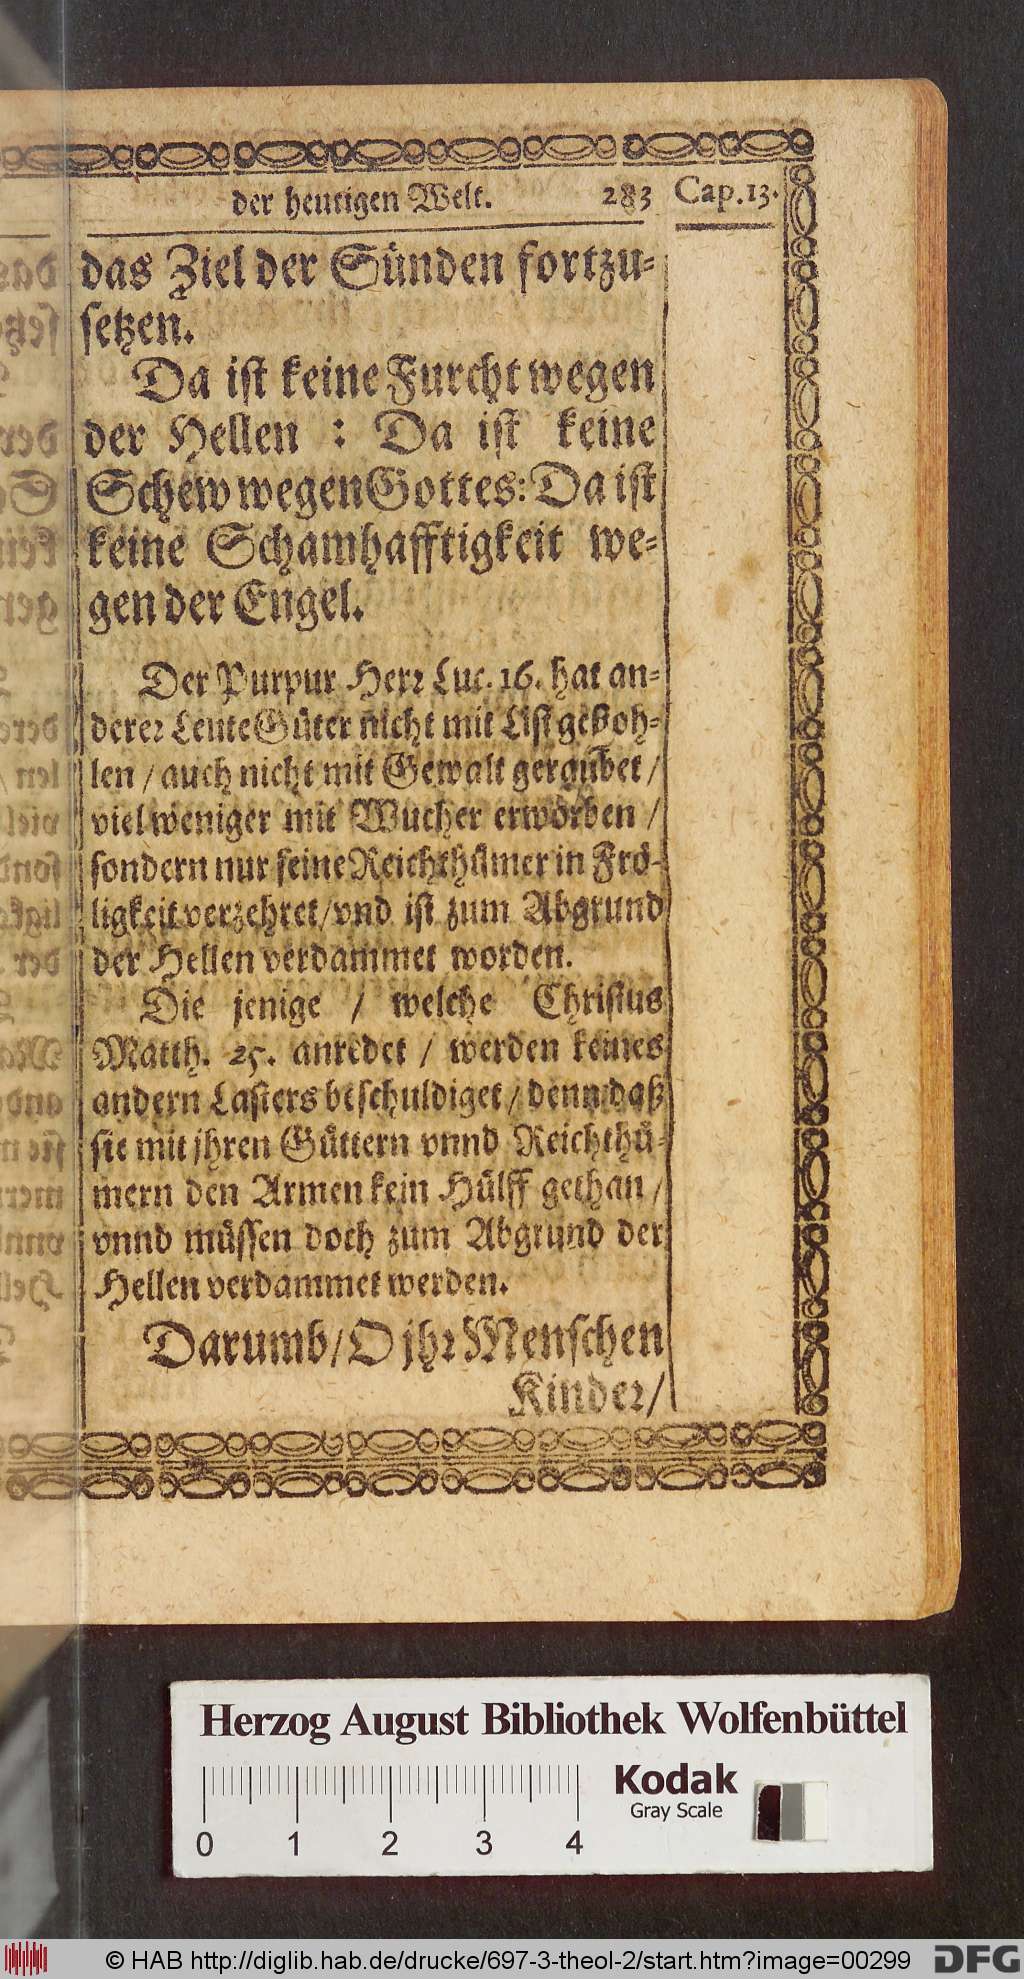 der heutigen Welt. 283 Cap. 13.
das Ziel der Sünden fortzu-
setzen.
Da ist keine Furcht wegen
der Hellen : Da ist keine
Schew wegen Gottes: Da ist
keine Schamhafftigkeit we-
gen der Engel.
Der Purpur Herr Luc. 16. hat an-
derer Leute Güter nicht mit List gestoh-
len / auch nicht mit Gewalt geraubet /
viel weniger mit Wucher erworben /
sondern nur seine Reichthümer in Frö-
ligkeit verzehret / vnd ist zum Abgrund
der Hellen verdammet worden.
Die jenige / welche Christus
Matth. 25. anredet / werden keines
andern Lasters beschuldiget / denn daß
sie mit jhren Güttern vnnd Reichthü-
mern den Armen kein Hülff gethan /
vnnd müssen doch zum Abgrund der
Hellen verdammet werden.
Darumb / O jhr Menschen
Kinder /
Herzog August Bibliothek Wolfenbüttel
Kodak
Gray Scale
0 1 2 3 4
© HAB http://diglib.hab.de/drucke/697-3-theol-2/start.htm?image=00299 DFG